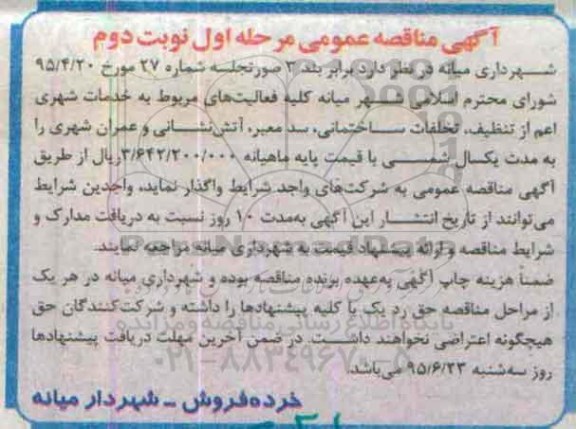 آگهی مناقصه عمومی مرحله اول نوبت دوم
شهرداری میانه در نظر دارد برابر بند ۳ صورتجلسه شماره ۲۷ مورخ ۹۵/۴/۲۰
شورای محترم اسلامی شهر میانه کلیه فعالیت‌های مربوط به خدمات شهری
اعم از تنظیف، تخلفات ساختمانی، سد معبر، آتش‌نشانی و عمران شهری را
به مدت یکسال شمسی با قیمت پایه ماهیانه ۳/۶۴۲/۲۰۰/۰۰۰ریال از طریق
آگهی مناقصه عمومی به شرکت‌های واجد شرایط واگذار نماید، واجدین شرایط
می‌توانند از تاریخ انتشار این آگهی به‌مدت ۱۰ روز نسبت به دریافت مدارک و
شرایط مناقصه و ارائه پیشنهاد قیمت به شهرداری میانه مراجعه نمایند.
ضمناً هزینه چاپ آگهی به‌عهده برنده مناقصه بوده و شهرداری میانه در هر یک
از مراحل مناقصه حق رد یک یا کلیه پیشنهادها را داشته و شرکت‌کنندگان حق
پایگاه اطلاع رسانی مناقصه و مزایده
هیچگونه اعتراضی نخواهند داشت. در ضمن آخرین مهلت دریافت پیشنهادها
۰۲۱-۸۸۳۴۹۶۷۰-۵
روز سه‌شنبه ۹۵/۶/۲۳ می‌باشد.
خرده‌فروش ـ شهردار میانه